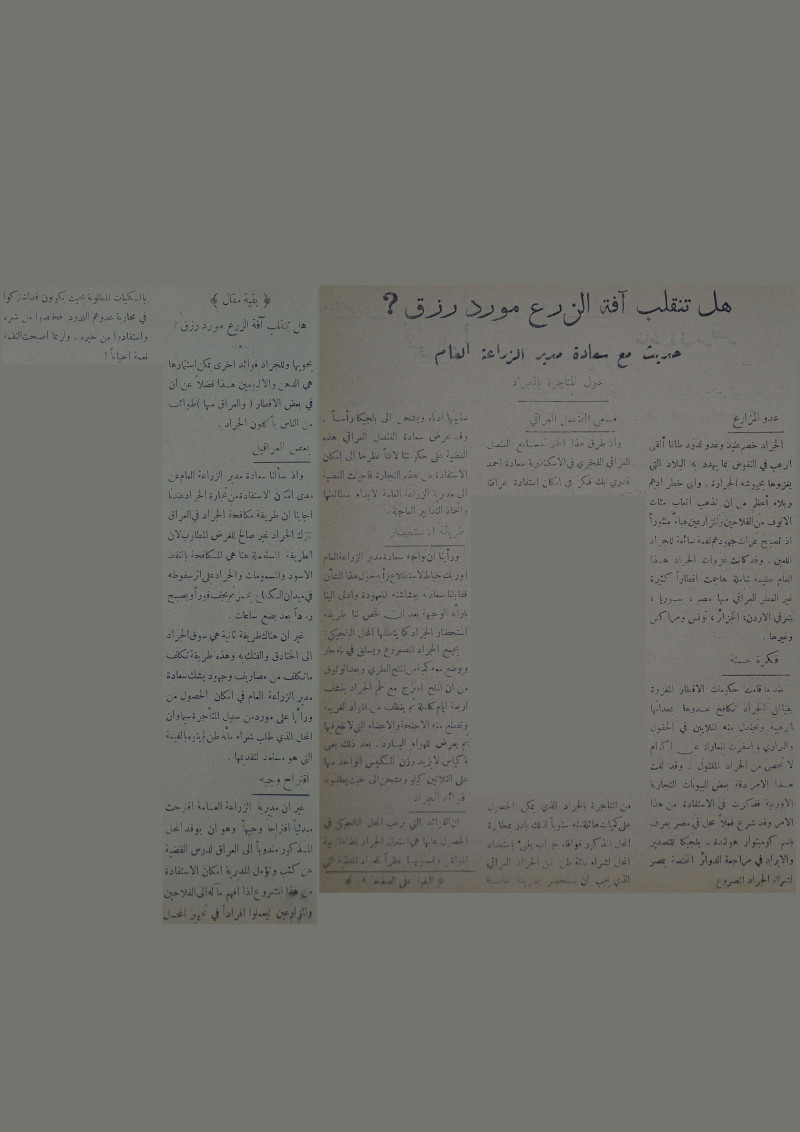 هل تنقلب آفة الزرع مورد رزق ؟
حديث مع سعادة مدير الزراعة العام
حول المتاجرة بالجراد
عدو المزارع
الجراد خصم عنيد وعدو لدود طالما ألقى
الرعب في النفوس بما يهدد به البلاد التي
يغزوها بجيوشه الجرارة . وأي خطر أدهم
وبلاء أعظم من ان تذهب اتعاب مئات
الالوف من الفلاحين والمزارعين هباء منثوراً
اذ تصبح ثمرات جهودهم لقمة سائغة للجراد
اللعين . وقد كانت غزوات الجراد هذا
العام عظيمة شاملة هاجمت اقطاراً كثيرة
غير القطر العراقي منها مصر ، سوريا ،
شرقي الاردن، الجزائر ، تونس ومراكش
وغيرها .
فكرة حسنة
عندما قامت حكومات الاقطار المغزوة
بفيالق الجراد تكافح عدوها بمعداتها
الرهيبة وتجندل منه الملايين في الحقول
والبراري ، اسفرت المعارك عن اكوام
لا تحصى من الجراد المقتول . وقد لفت
هذا الامر دقة بعض البيوتات التجارية
الاوربية ففكرت في الاستفادة من هذا
الامر وقد شرع فعلاً محل في مصر يعرف
باسم كومبتوار هولندة ـ بلجيكا للتصدير
والايراد في مراجعة الدوائر المختصة بمصر
لشراء الجراد المصروع
مسعى القنصل العراقي
واذ طرق هذا الخبر مسامع القنصل
العراقي الفخري في الاسكندرية سعادة احمد
قدري بك فكر في امكان استفادة عراقنا
من المتاجرة بالجراد الذي يمكن الحصول
على كميات هائلة منه سنوياً لذلك بادر بمخابرة
المحل المذكور فوافاه جواب يفيد باستعداد
المحل لشراء مائة طن من الجراد العراقي
الذي يجب ان يستحضر بطريقة خاصة
سنبينها ادناه ويشحن الى بلجيكا رأساً .
وقد عرض سعادة القنصل العراقي هذه
القضية على حكومتنا لافتاً نظرها الى امكان
الاستفادة من هذه التجارة فأحيلت القضية
الى مديرية الزراعة العامة لابداء مطالعتها
واتخاذ التدابير العاجلة .
طريقة الاستحضار
ورأينا ان نواجه سعادة مدير الزراعة العام
لاستطلاع رأيه حول هذا الشأن
فقابلنا سعادته ببشاشته المعهودة وأدلى الينا
بآرائه الوجيهة بعد ان لخص لنا طريقة
استحضار الجراد كما يتطلبها المحل البلجيكي:
يجمع الجراد المصروع ويسلق في بخار
ويوضع معه كمية من الملح الطري وبعد الوثوق
من ان الملح امتزج مع لحم الجراد يشمس
اربعة ايام كاملة ثم ينظف من المواد الغريبة
وتقطع منه الاجنحة والاعضاء التي لا نفع فيها
ثم يعرض للهواء البارد . بعد ذلك يعبى
باكياس لا يزيد وزن الكيس الواحد منها
على الثلاثين كيلو ويشحن الى حيث يطلبونه
فوائد الجراد
ان الفوائد التي يرغب المحل البلجيكي في
الحصول عليها هي استعمال الجراد طعاماً لتربية
المواشي وتسمينها نظراً للمواد المغذية التي
﴿ البقية على الصفحة ٨ ﴾
﴿ بقية مقال ﴾
هل تنقلب آفة الزرع مورد رزق ؟
يحويها وللجراد فوائد اخرى يمكن استثمارها
هي الدهن والالبومين هذا فضلاً عن ان
في بعض الاقطار ( والعراق منها ) طوائف
من الناس يأكلون الجراد .
بعض العراقيل
واذ سألنا سعادة مدير الزراعة العام عن
مدى امكان الاستفادة من تجارة الجراد عندنا
اجابنا ان طريقة مكافحة الجراد في العراق
تترك الجراد غير صالح للغرض المطلوب لان
الطريقة المستعملة هنا هي المكافحة بالنفط
الاسود والسمومات والجراد على اثر سقوطه
في ميدان الكفاح يتخمر ثم يجف فوراً ويصبح
رماداً بعد بضع ساعات .
غير ان هناك طريقة ثانية هي سوق الجراد
الى الخنادق والفتك به وهذه طريقة تكلف
ما تكلف من مصاريف وجهود يشك سعادة
مدير الزراعة العام في امكان الحصول من
ورائها على مورد من سبيل المتاجرة سيما وان
المحل الذي طلب شراء مائة طن لم ينوه بالقيمة
التي هو مستعد لتقديمها .
اقتراح وجيه
غير ان مديرية الزراعة العامة اقترحت
مبدئياً اقتراحاً وجيهاً وهو ان يوفد المحل
المذكور مندوباً الى العراق لدرس القضية
عن كثب وتؤمل المديرية امكان الاستفادة
من هذا المشروع اذا افهم مآله الى الفلاحين
والمزارعين ليعملوا افراداً في تجهيز المحل
بالكميات المطلوبة بحيث يكونون قد اشتركوا
في محاربة عدوهم اللدود فتخلصوا من شره
واستفادوا من خيره . ولربما اصبحت النقمة
نعمة احياناً !